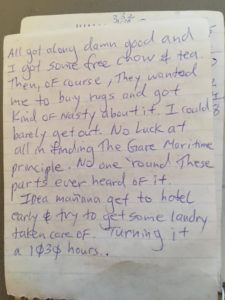 337
All got along damn good and
I got some free chow & tea.
Then, of course, They wanted
me to buy rugs and got
kind of nasty about it. I could
barely get out. No Luck at
all in finding The Gare Maritime
principle. No one 'round These
parts ever heard of it.
Idea mañana get to hotel
early & try to get some landry
taken care of. Turning it
a 1030 hours..